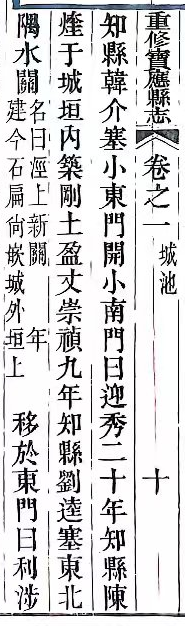 重修寶應縣志 卷之一 城池 十
知縣韓介塞小東門開小南門曰迎秀二十年知縣陳
煃于城垣內築剛土盈丈崇禎九年知縣劉逵塞東北
隅水關名曰涇上新關 年建今石扁尙嵌城外垣上 移於東門曰利涉